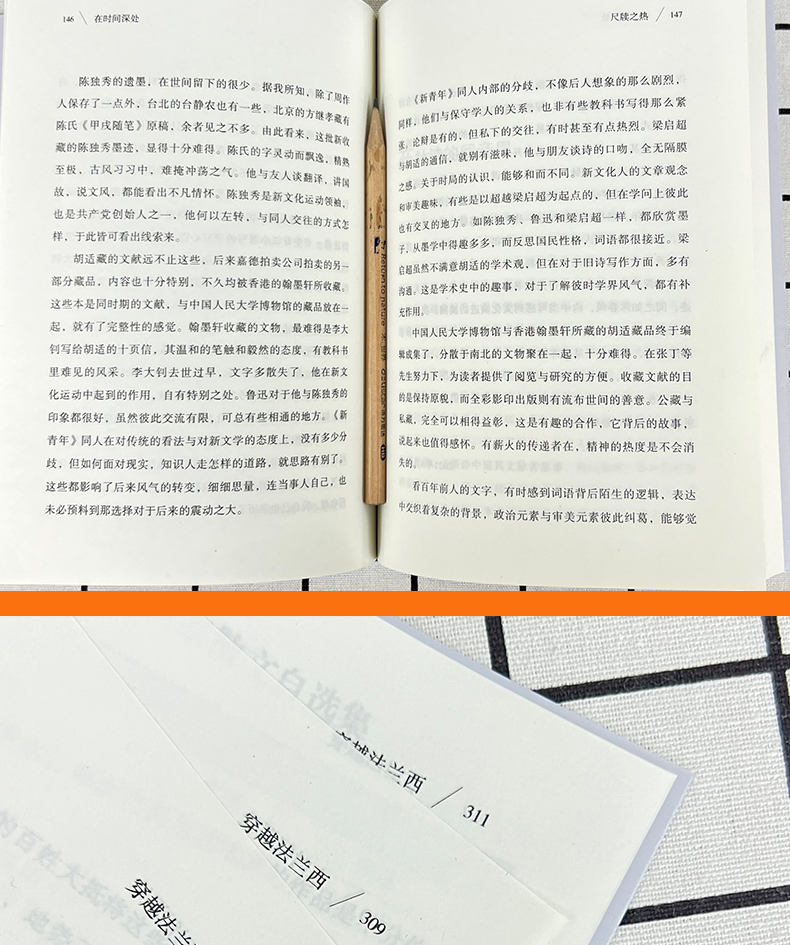 146 \ 在时间深处
陈独秀的遗墨，在世间留下的很少。据我所知，除了周作
人保存了一点外，台北的台静农也有一些，北京的方继孝藏有
陈氏《甲戌随笔》原稿，余者见之不多。由此看来，这批新收
藏的陈独秀墨迹，显得十分难得。陈氏的字灵动而飘逸，精熟
至极，古风习习中，难掩冲荡之气。他与友人谈翻译，讲国
故，说文风，都能看出不凡情怀。陈独秀是新文化运动领袖，
也是共产党创始人之一，他何以左转，与同人交往的方式怎
样，于此皆可看出线索来。
胡适藏的文献远不止这些，后来嘉德拍卖公司拍卖的另一
部分藏品，内容也十分特别，不久均被香港的翰墨轩所收藏。
这些本是同时期的文献，与中国人民大学博物馆的藏品放在一
起，就有了完整性的感觉。翰墨轩收藏的文物，最难得是李大
钊写给胡适的十页信，其温和的笔触和毅然的态度，有教科书
里难见的风采。李大钊去世过早，文字多散失了，他在新文
化运动中起到的作用，自有特别之处。鲁迅对于他与陈独秀的
印象都很好，虽然彼此交流有限，可总有些相通的地方。《新
青年》同人在对传统的看法与对新文学的态度上，没有多少分
歧，但如何面对现实，知识人走怎样的道路，就思路有别了。
这些都影响了后来风气的转变，细细思量，连当事人自己，也
未必预料到那选择对于后来的震动之大。
尺牍之热 / 147
《新青年》同人内部的分歧，不像后人想象的那么剧烈，
同样，他们与保守学人的关系，也非有些教科书写得那么紧
张，论辩是有的，但私下的交往，有时甚至有点热烈。梁启超
与胡适的通信，就别有滋味，他与朋友谈诗的口吻，全无隔膜
之感。关于时局的认识，能够和而不同。新文化人的文章观念
和审美趣味，有些是以超越梁启超为起点的，但在学问上彼此
也有交叉的地方。如陈独秀、鲁迅和梁启超一样，都欣赏墨
子，从墨学中得趣多多，而反思国民性格，词语都很接近。梁
启超虽然不满意胡适的学术观，但在对于旧诗写作方面，多有
沟通。这是学术史中的趣事，对于了解彼时学界风气，都有补
充作用。
中国人民大学博物馆与香港翰墨轩所藏的胡适藏品终于编
辑成集了，分散于南北的文物聚在一起，十分难得。在张丁等
先生努力下，为读者提供了阅览与研究的方便。收藏文献的目
的是保持原貌，而全彩影印出版则有流布世间的善意。公藏与
私藏，完全可以相得益彰，这是有趣的合作，它背后的故事，
说起来也值得感怀。有薪火的传递者在，精神的热度是不会消
失的。
看百年前人的文字，有时感到词语背后陌生的逻辑，表达
中交织着复杂的背景，政治元素与审美元素彼此纠葛，能够觉
Return to nature
越法兰西 / 311
穿越法兰西 / 309
穿越法兰